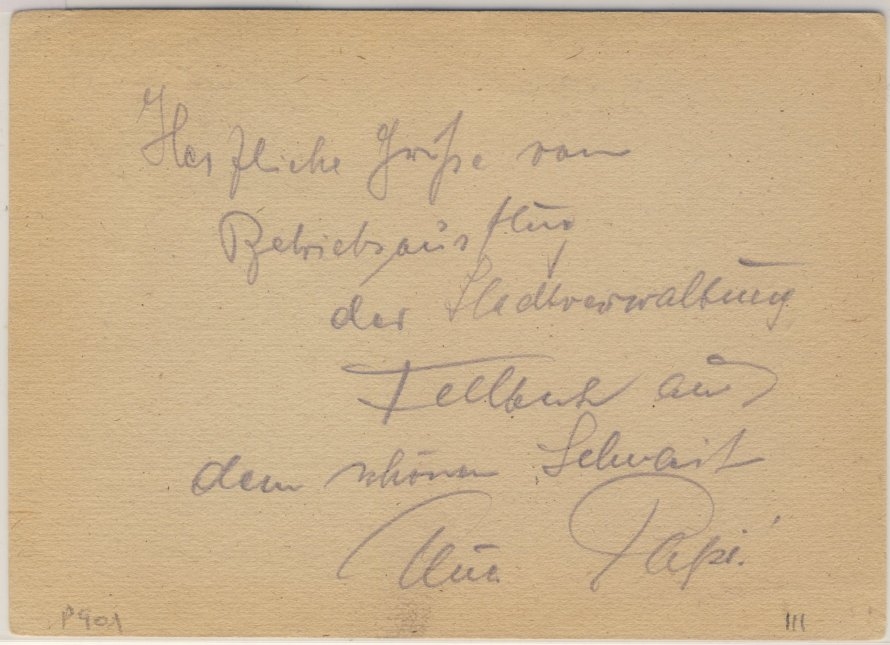 Herzliche Grüße vom
Betriebsausflug
der Stadtverwaltung
Fellbach aus
dem schönen Schnait
Papi!
P901
III